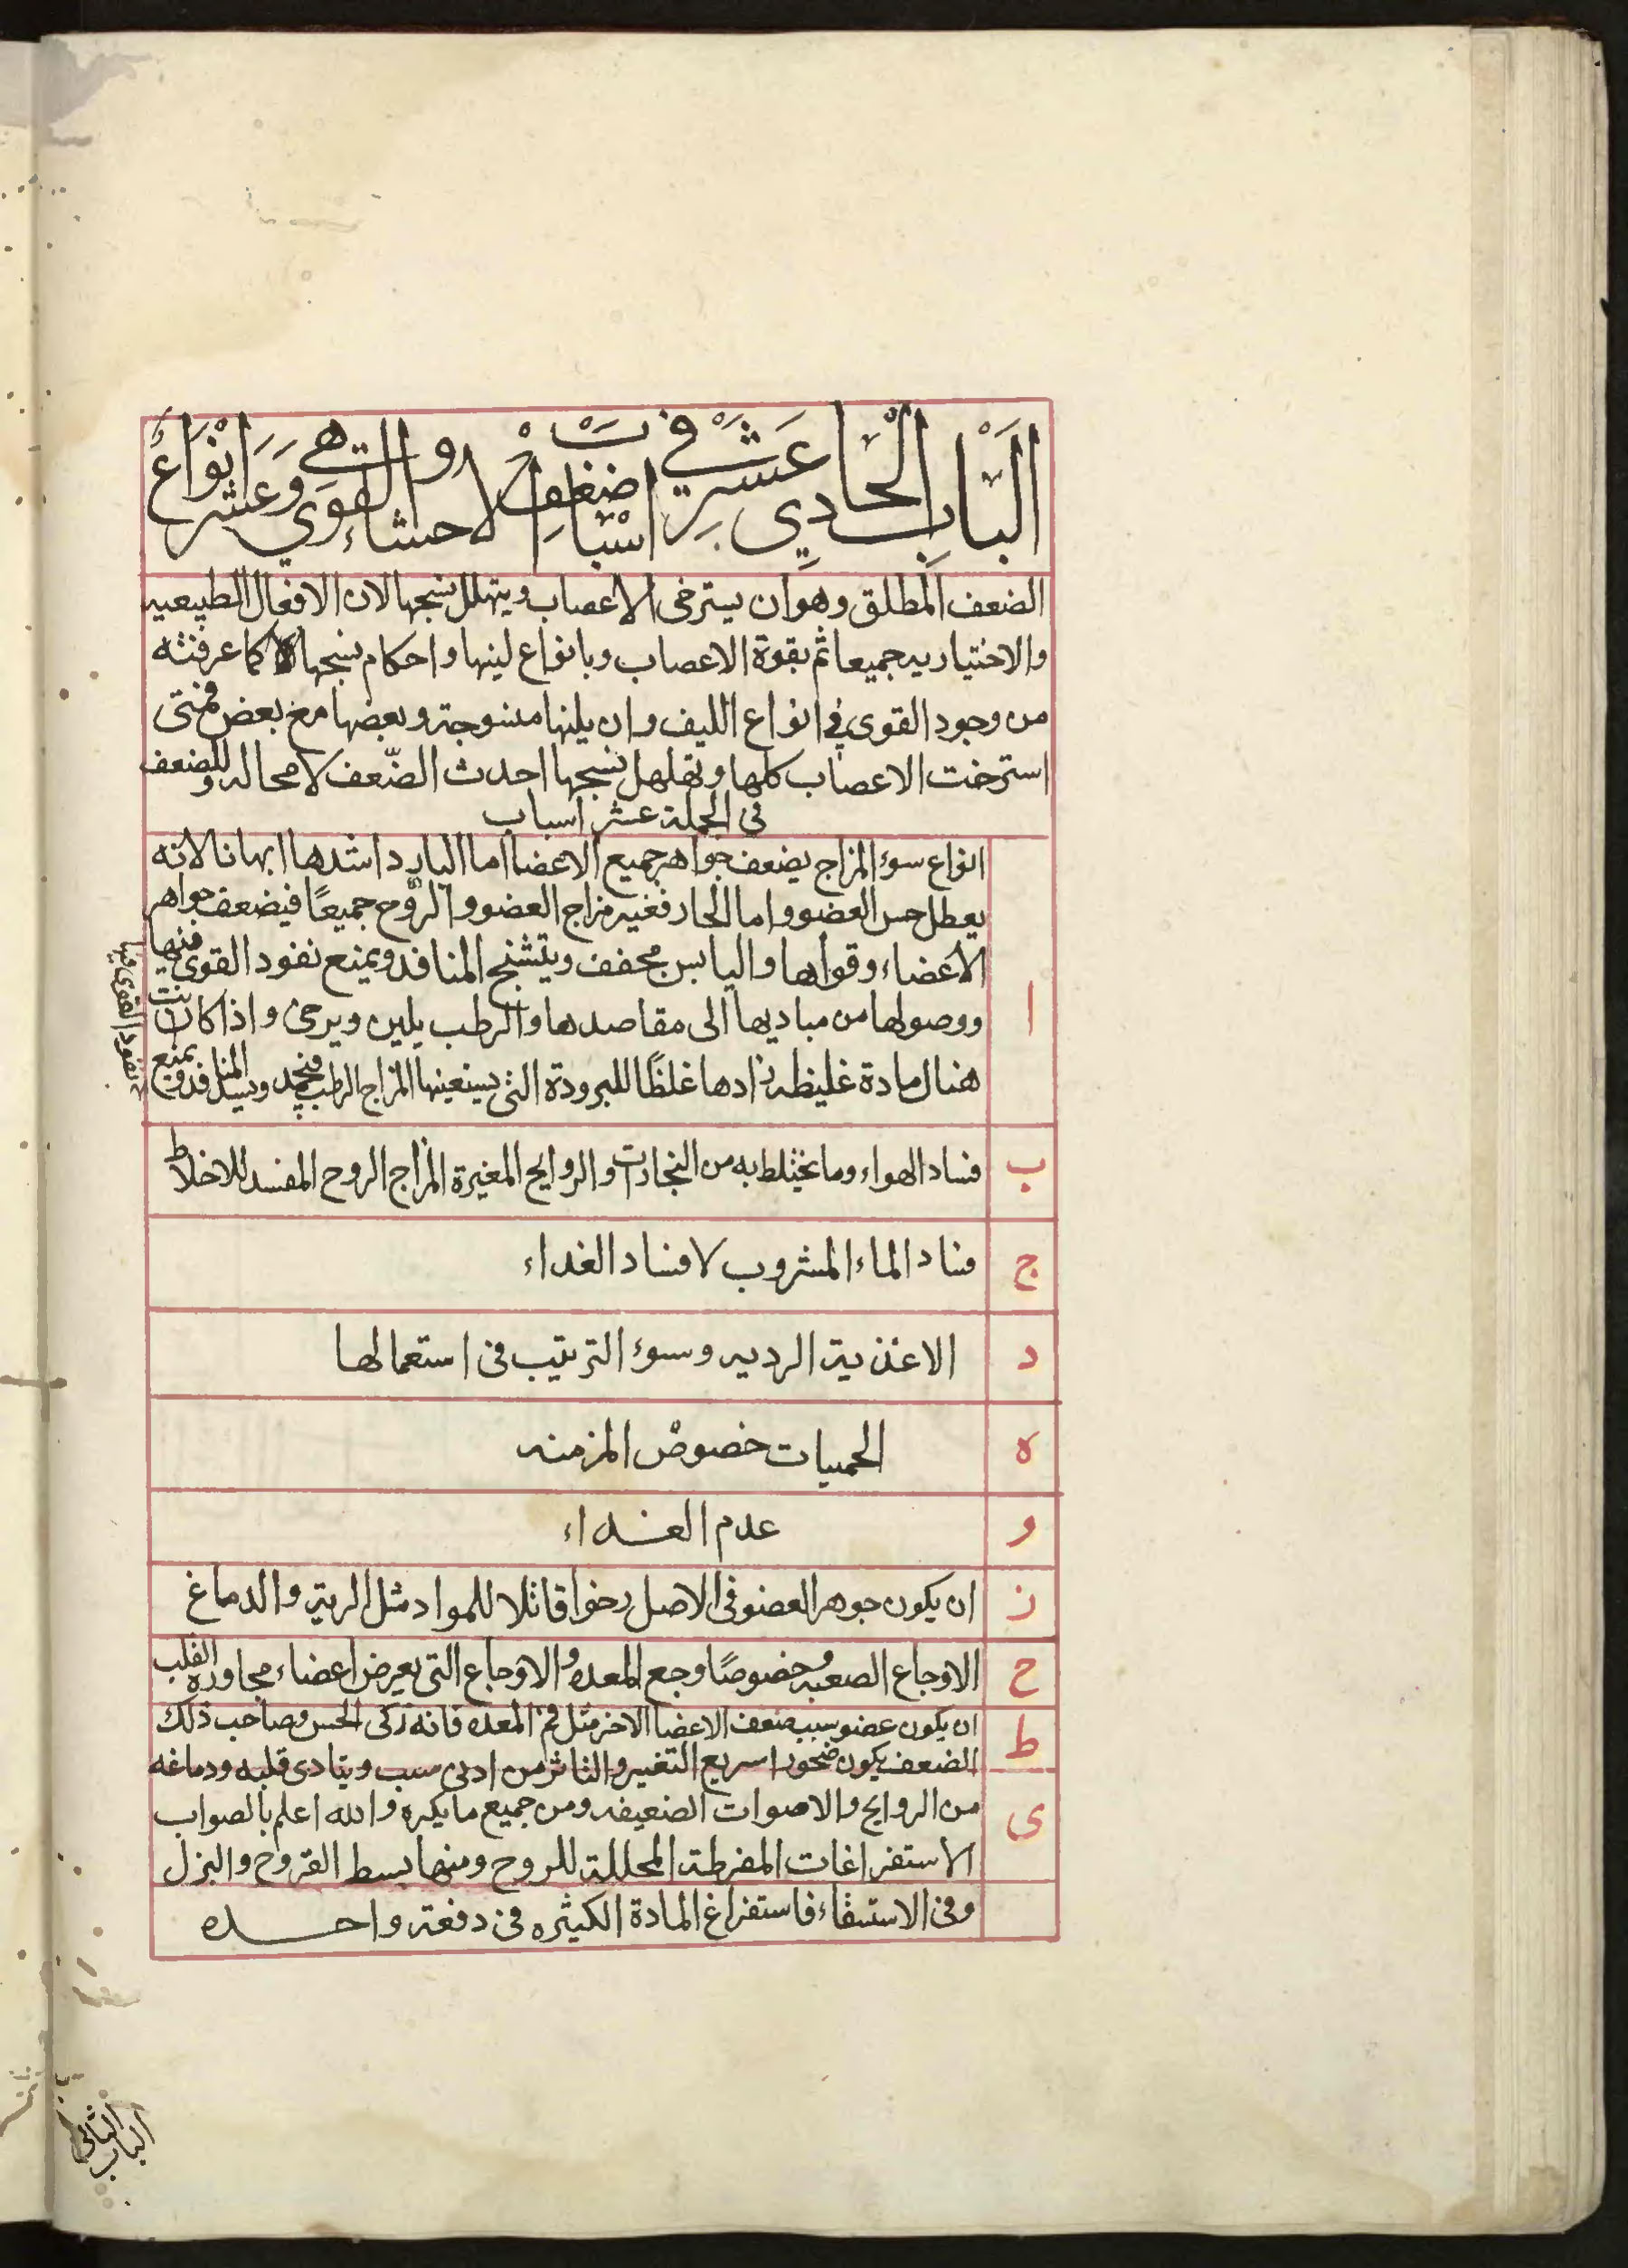 الباب الحادي عشر في اسباب ضعف الاحشاء والقوى وهي عشر انواع
الضعف المطلق وهو ان يسترخى الاعصاب ويتهلل نسجها لان الافعال الطبيعيه
والاختياريه جميعا ثم بقوة الاعصاب وبانواع لينها واحكام نسجها كما عرفته
من وجود القوى في انواع الليف وان يلنها منسوجة وبعضها مع بعض فمتى
استرخت الاعصاب كلها وتهلهل نسجها احدث الضعف لا محاله وللضعف
فى الجملة عشر اسباب
ا انواع سوء المزاج يضعف جواهر جميع الاعضا اما البارد اشدها ابهانا لانه
يعطل حس العضو واما الحار فغير مزاج العضو والروح جميعًا فيضعف جواهر
الاعضاء وقواها واليابس مجفف ويتشنج المنافد ويمنع نفود القوى فيها
ووصولها من مباديها الى مقاصدها والرطب يلين ويرخى واذا كانت
هنال مادة غليظه زادها غلظًا للبرودة التى يسنعينها المزاج الرطب فيجمد ويسد المنافد ويمنع
نفود القوى فيها
ب فساد الهواء وما يختلط به من البخارات والروايح المغيرة المزاج الروح المفسد للاخلاط
ج فساد الماء المشروب لافساد الغداء
د الاغذية الرديه وسوء الترتيب فى استعمالها
ه الحميات خصوص المزمنه
و عدم الغداء
ز ان يكون جوهر العضو فى الاصل رخوا قاتلا للمواد مثل الرية والدماغ
ح الاوجاع الصعبه وخصوصًا وجع المعده والاوجاع التى يعرض اعضاء مجاورة القلب
ط ان يكون عضو سبب ضعف الاعضا الاخر مثل فم المعده فانه زكى الحس وصاحب ذلك
الضعف يكون ضجورا سريع التغير والتاثر من ادنى سبب ويتادى قلبه ودماغه
ى من الروايح والاصوات الضعيفه ومن جميع ما يكره والله اعلم بالصواب
الاستفراغات المفرطة المحللة للروح ومنها بسط القروح والبزل
وفى الاستسقاء فاستفراغ المادة الكثيره فى دفعة واحده
الباب الثانى